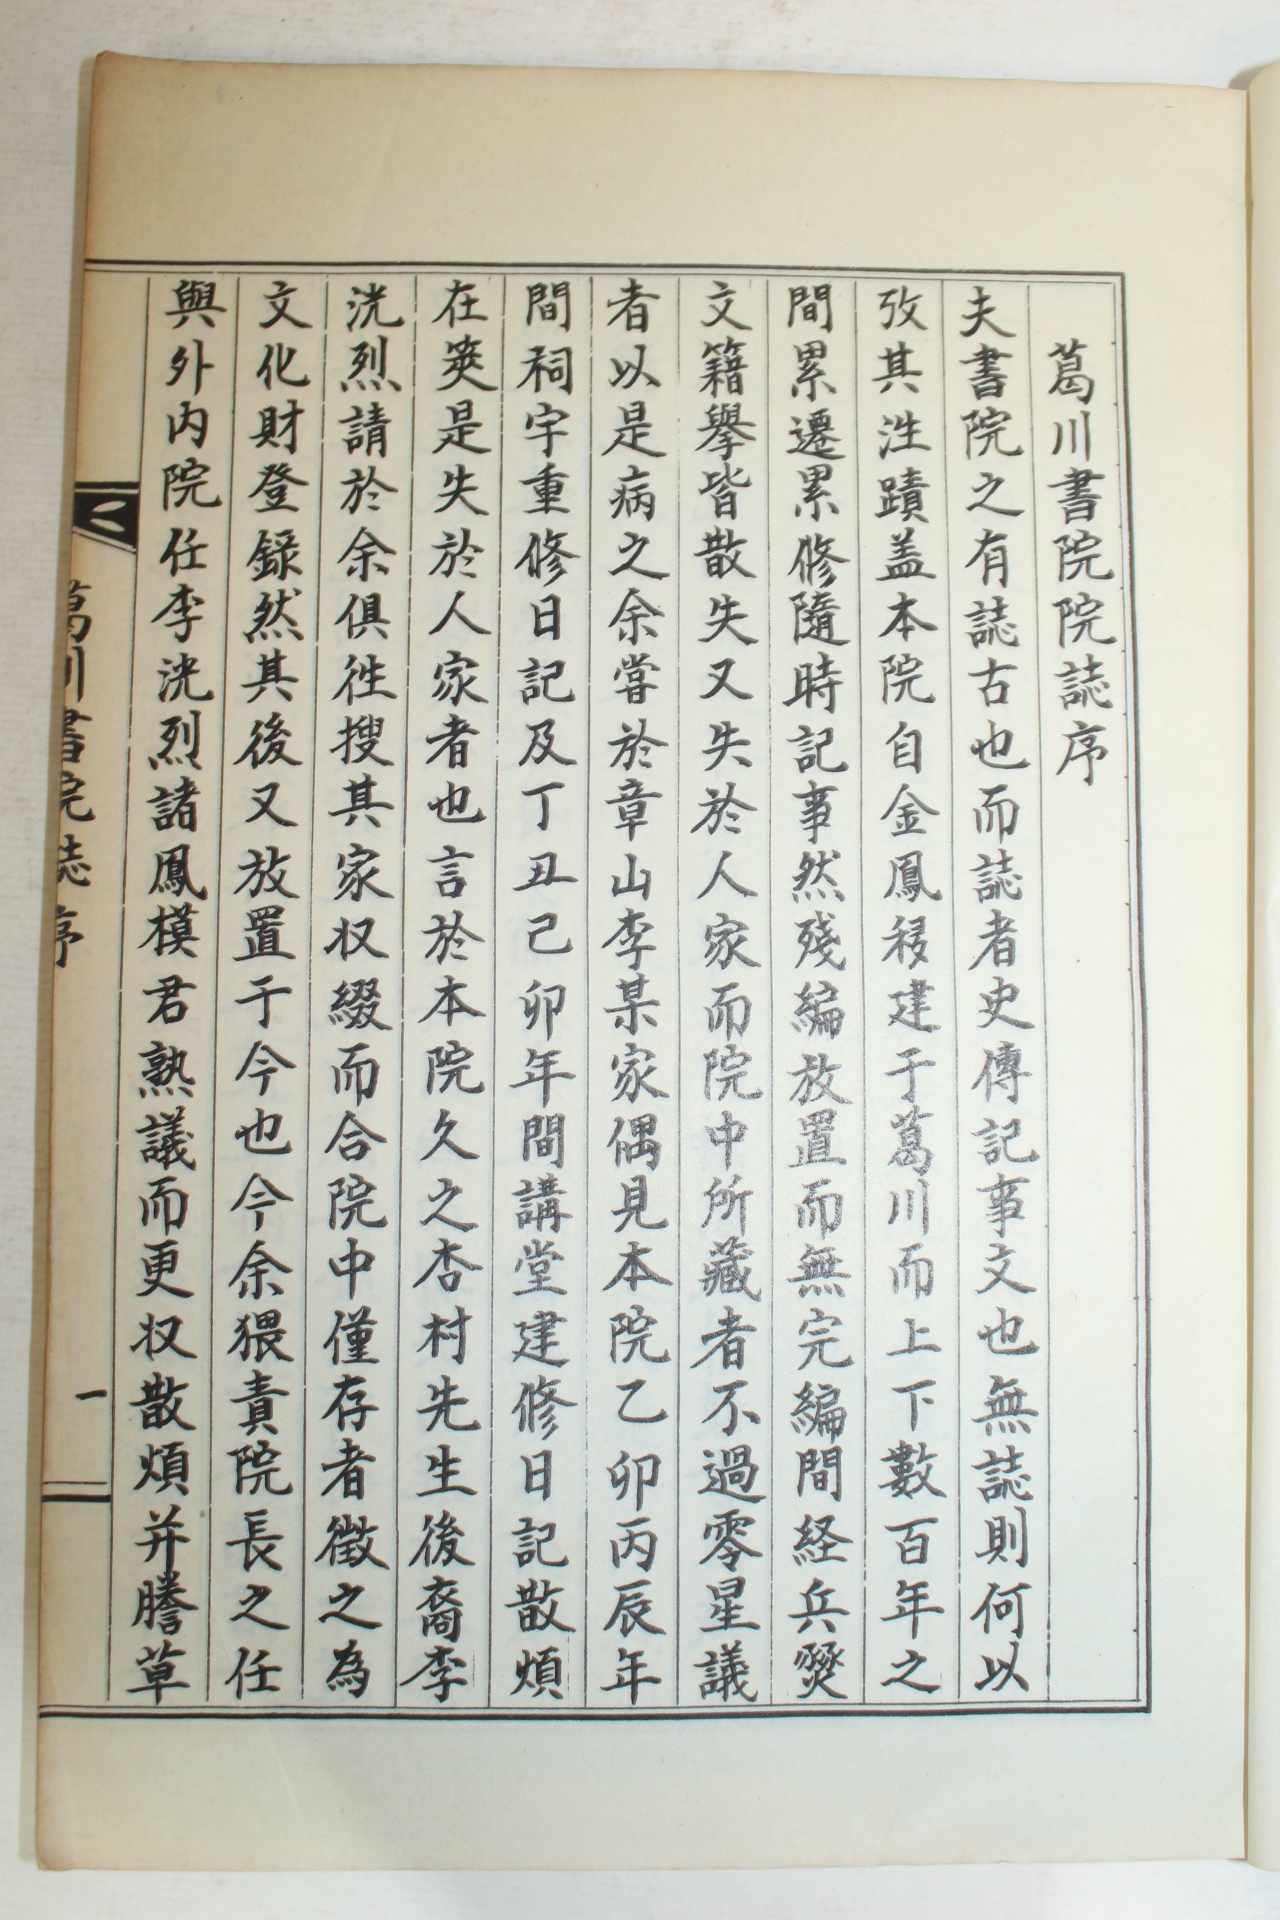 葛川書院院誌序
夫書院之有誌古也而誌者史傳記事文也無誌則何以
攷其徃蹟盖本院自金鳳移建于葛川而上下數百年之
間累遷累修隨時記事然殘編放置而無完編間経兵燹
文籍擧皆散失又失於人家而院中所藏者不過零星議
者以是病之余嘗於章山李某家偶見本院乙卯丙辰年
間祠宇重修日記及丁丑己卯年間講堂建修日記散煩
在筴是失於人家者也言於本院久之杏村先生後裔李
洸烈請於余俱徃搜其家収綴而合院中僅存者徵之為
文化財登錄然其後又放置于今也今余猥責院長之任
與外内院任李洸烈諸鳳模君熟議而更収散煩并謄草
葛川書院誌序
一